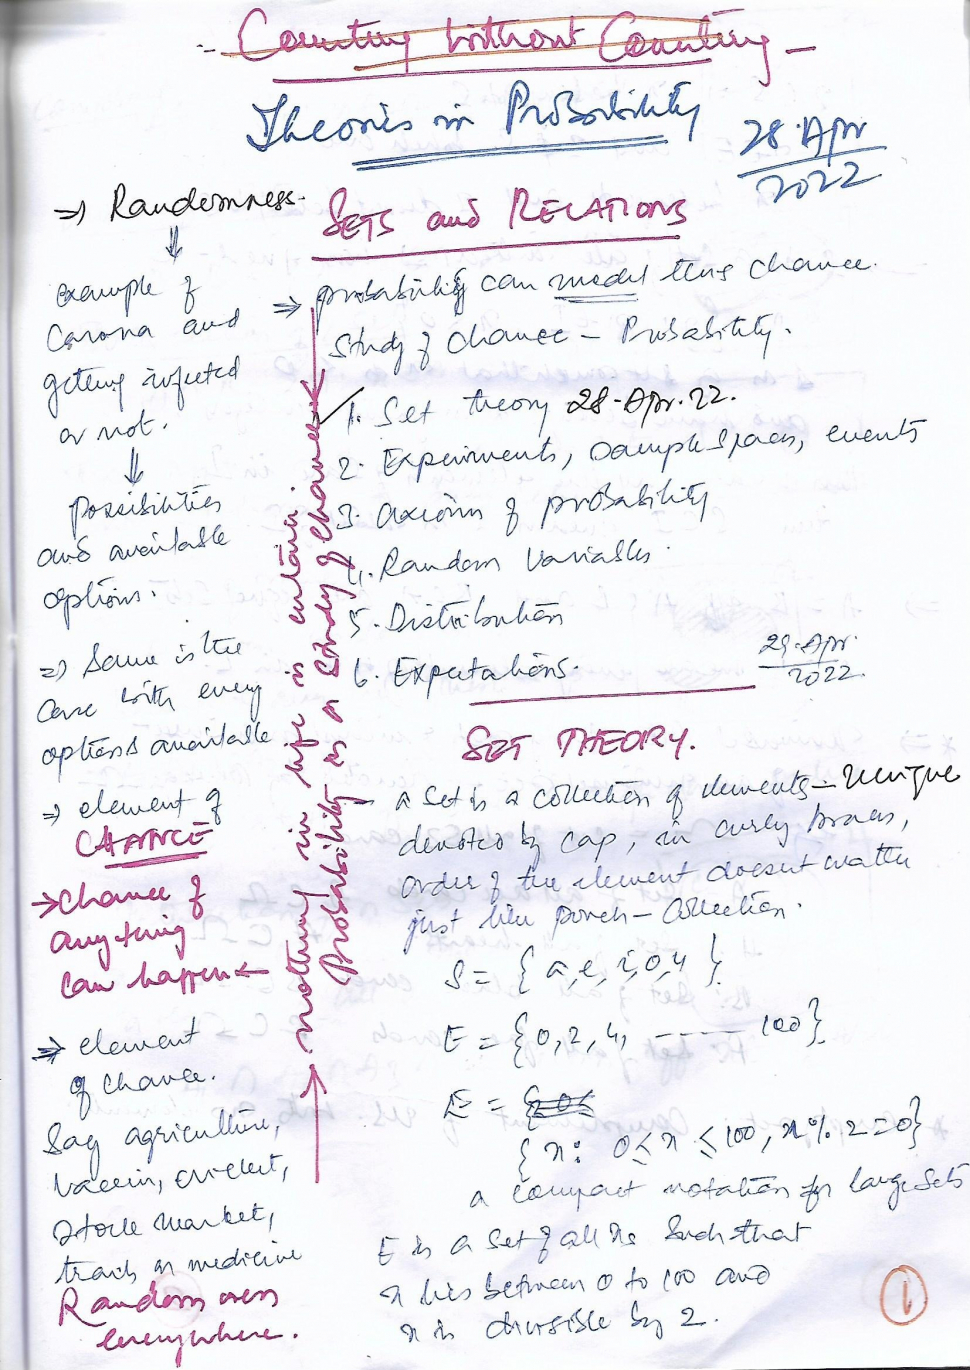 - Counting without Counting -
Theories in Probability
28.Apr
2022
=> Randomness.
example of
Corona and
getting infected
or not.
possibilities
and available
options.
=> Same is the
case with every
options available
=> element of
CHANCE
-> chance of
anything
can happen <-
=> element
of chance.
Say agriculture,
vaccin, cricket,
stock market,
trails on medicine
Randomness
everywhere.
nothing in life is certain.
Probability is a study of chance.
SETS and RELATIONS
=> probability can model this chance.
Study of chance - Probability.
1. Set theory 28-Apr.22.
2. Experiments, Sample Spaces, events
3. axioms of probability
4. Random Variables.
5. Distribution
6. Expectations.
29.Apr
2022
SET THEORY.
- a set is a collection of elements - Unique
denoted by cap, in curly braces,
order of the element doesnt matter
just like - Collection.
S = { a, e, i, o, u }
E = {0, 2, 4, ------ 100}
E =
{ x: 0 ≤ x ≤ 100, x % 2 = 0}
a compact notation for large sets
E is a set of all xs such that
x lies between 0 to 100 and
x is divisible by 2.
1